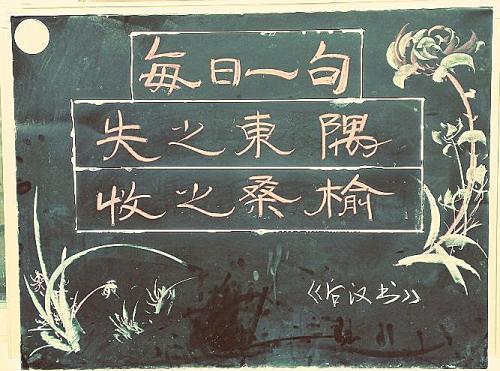 毎日一句
失之東隅
收之桑榆
《后汉书》